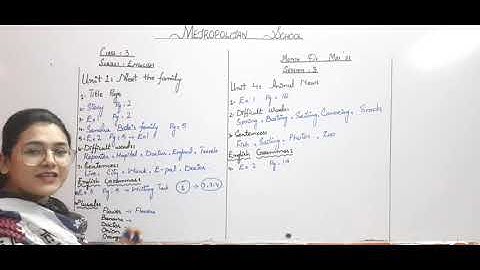 METROPOLITAN SCHOOL
Class: 3
Subject: English
Unit 1: Meet the family
1- Title Page
2- Story Pg: 2
3- Ex 1 Pg: 2
4- Sandra Bob's family Pg: 5
5- Ex 2 Pg: 4 → Ex 1
6- Difficult words:
Reporter, Hospital, Doctor, England, Travels
7- Sentences
Live, City, Work, E-pal, Doctor
English Grammar:
Ex 3 Pg: 4 → Writing Task
Plurals
Flower → Flowers
Banana →
Doctor
Onion
Session: 3
Unit 4: Animal News
1- Ex 1 Pg: 18
2- Difficult words:
Saving, Boating, Sailing, Canoeing, Snacks
3- Sentences:
Fish, Sailing, Photos, Zoo
English Grammar:
Ex 2 Pg: 19